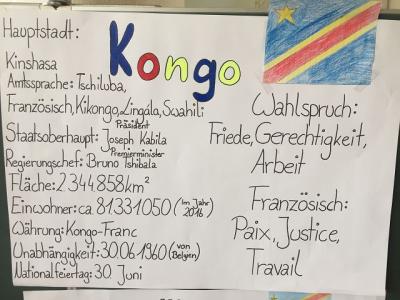 Kongo
Hauptstadt:
Kinshasa
Amtssprache: Tschiluba,
Französisch, Kikongo, Lingála, Swahili
Präsident
Staatsoberhaupt: Joseph Kabila
Premierminister
Regierungschef: Bruno Tshibala
Fläche: 2.344.858km²
Einwohner: ca. 81331050 (im Jahr 2016)
Währung: Kongo-Franc
Unabhängigkeit: 30.06.1960 (von Belgien)
Nationalfeiertag: 30 Juni
Wahlspruch:
Friede, Gerechtigkeit,
Arbeit
Französisch:
Paix, Justice,
Travail